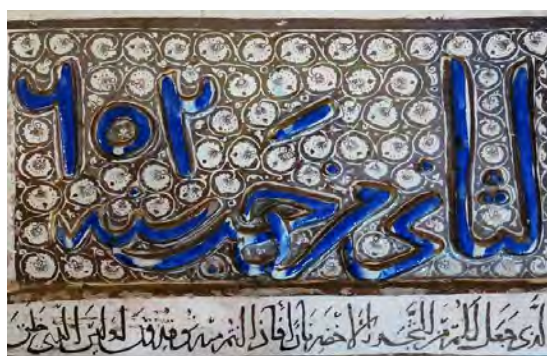 الثانى سنه ٦٥٢
الذى جعل لكم من الشجر الاخضر نارا فاذا انتم منه توقدون اوليس الذى خلق